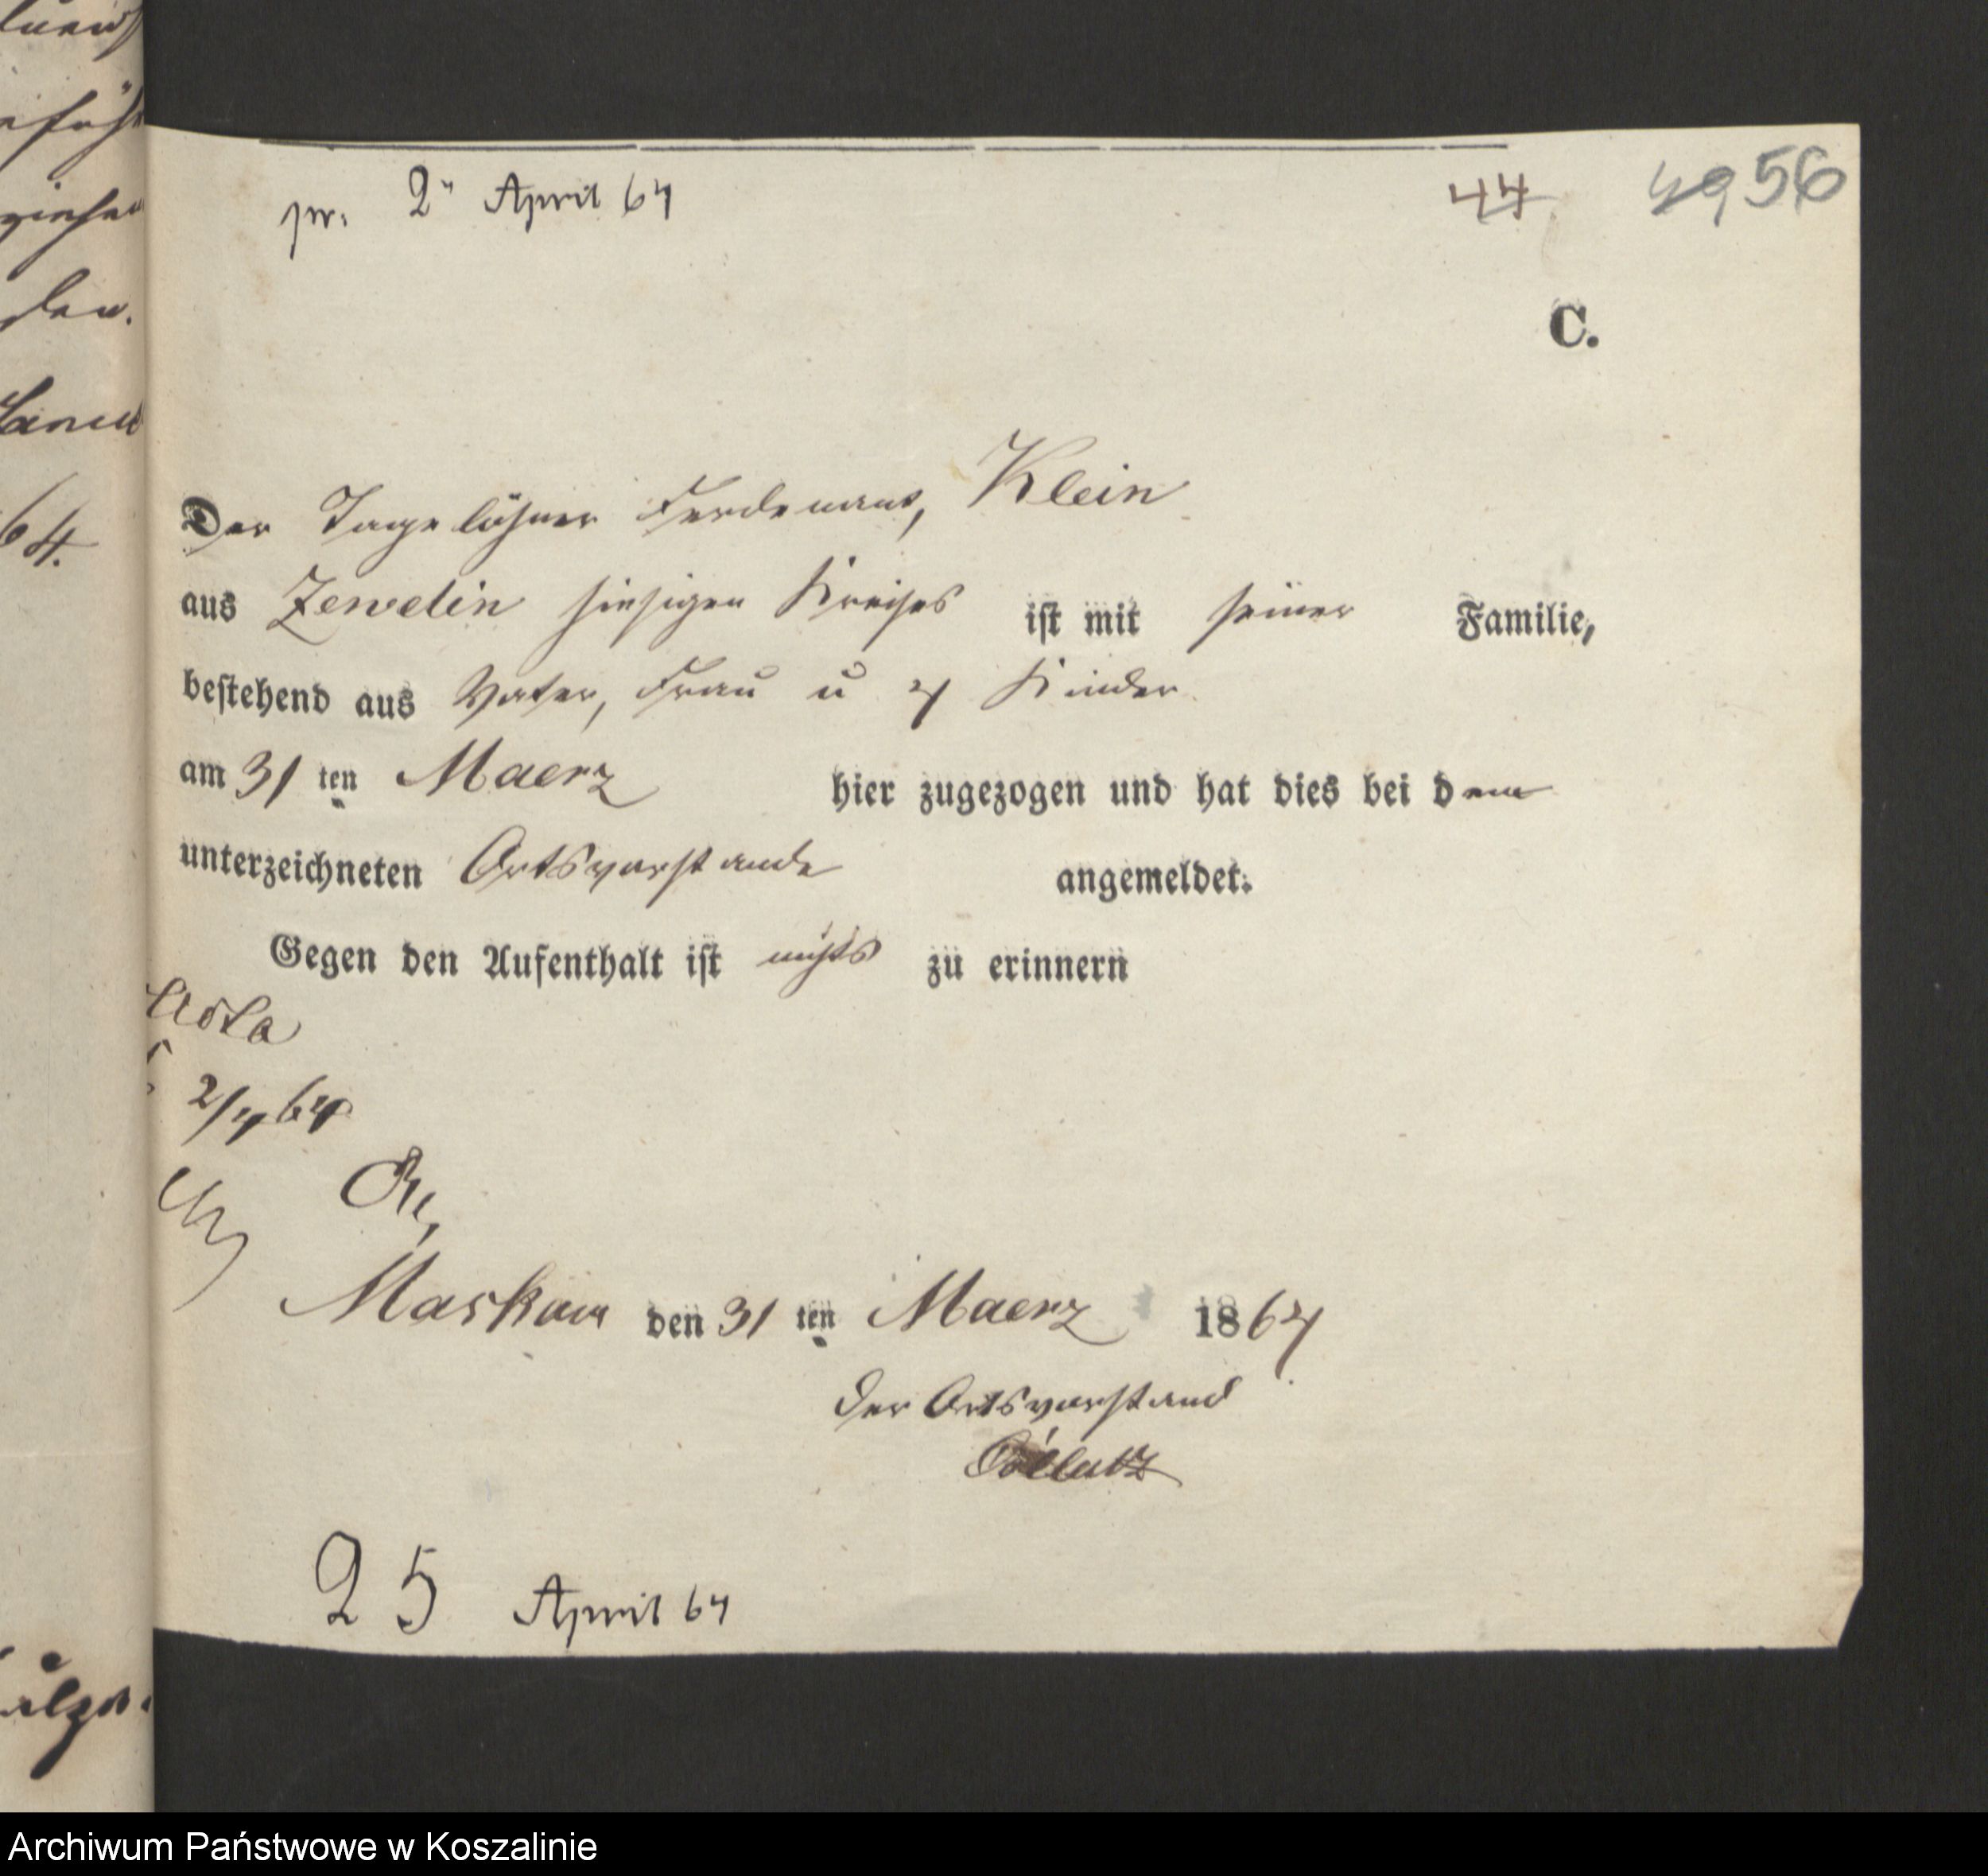 pr. 2" April 64
44 49 56
C.
Der Tagelöhner Ferdenant, Klein
aus Zewelin hiesigen Kreises ist mit seiner Familie,
bestehend aus Vater, Frau u 4 Kinder
am 31 ten Maerz hier zugezogen und hat dies bei dem
unterzeichneten Ortsvorstande angemeldet.
Gegen den Aufenthalt ist nichts zu erinnern
Acta
2/4 64
Maskow den 31 ten Maerz 1864
Der Ortsvorstand
Collatz
25 April 64
64.
Archiwum Państwowe w Koszalinie